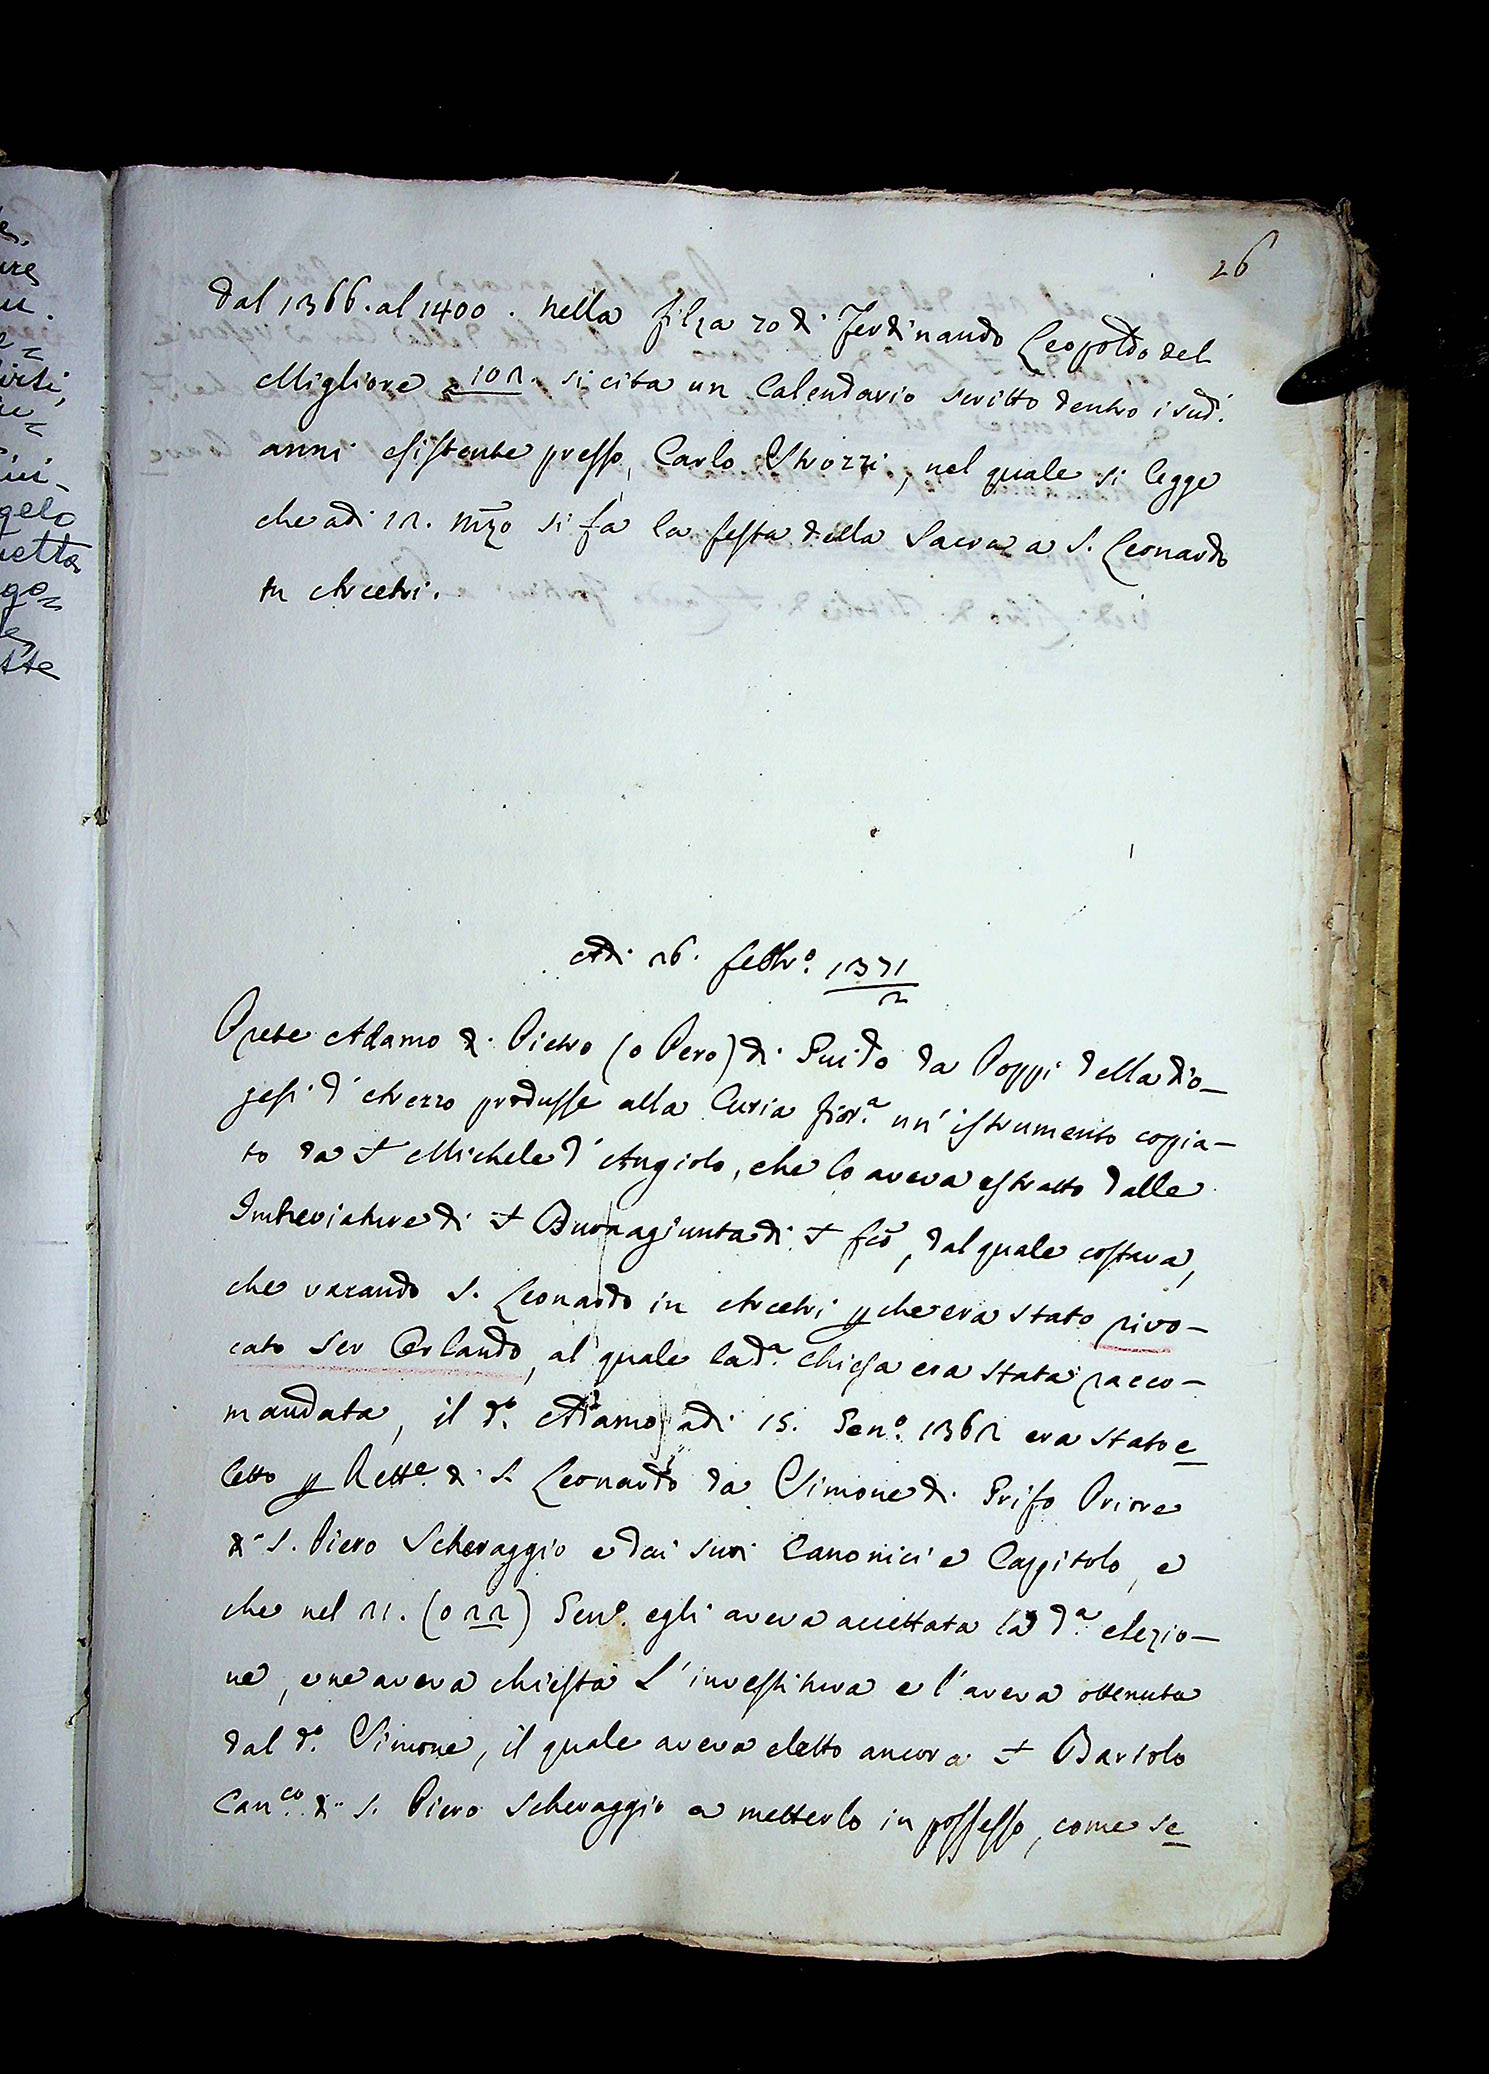 26
dal 1366. al 1400. nella filza 20 di Ferdinando Leopoldo del
Migliore a 102. si cita un Calendario scritto dentro i sud.i
anni esistente presso, Carlo Strozzi, nel quale si legge
che adi 12. mzo si fa la festa della Sacra a S. Leonardo
in Arcetri.
Adi 26. febbr.o 1371/2
Prete Adamo di Pietro (o Pero) di Guido da Poppi della dio-
zesi d'Arezzo produsse alla Curia fior.a un'istrumento copia-
to da Michele d'Angiolo, che lo aveva estratto dalle
Imbreviature di Buonagiunta di fco, dal quale costava,
che vacando S. Leonardo in Arcetri che era stato rivo-
cato Ser Orlando, al quale la d.a Chiesa era stata racco-
mandata, il d.o Adamo adi 15. Gen.o 1362 era stato e
letto Rett.e di S. Leonardo da Simone di Grifo Priore
di S. Piero Scheraggio e dai suoi Canonici e Cappitolo, e
che nel 21. (o 22) Gen.o egli aveva accettata la d.a elezio-
ne, e ne aveva chiesta l'investitura e l'aveva ottenuta
dal d.o Simone, il quale aveva eletto ancora Bartolo
Can.co di S. Piero Scheraggio a metterlo in possesso, come se
gelo
ietta
go=
tte